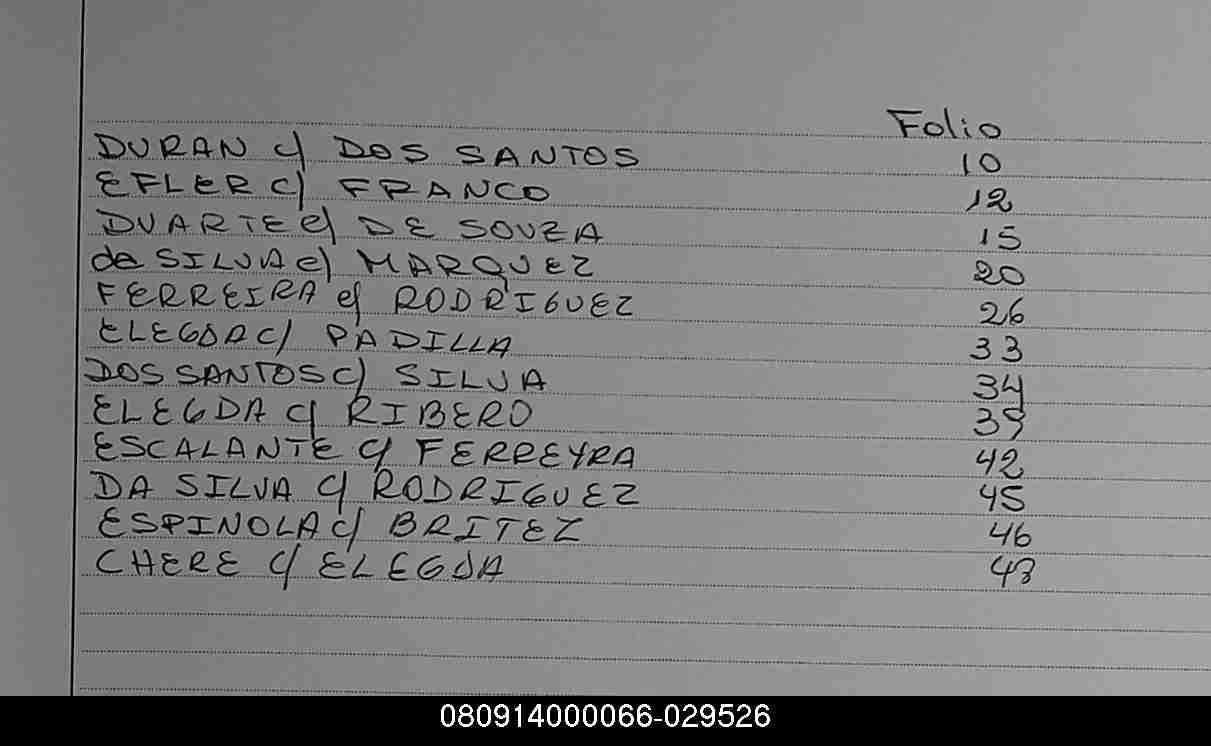 Folio
DURAN c/ DOS SANTOS 10
EFLER c/ FRANCO 12
DUARTE c/ DE SOUZA 15
de SILVA c/ MARQUEZ 20
FERREIRA c/ RODRIGUEZ 26
c/ PADILLA 33
DOS SANTOS c/ SILVA 34
ELEGDA c/ RIBERO
ESCALANTE c/ FERREYRA 42
DA SILVA c/ RODRIGUEZ 45
ESPINOLA c/ BRITEZ 46
CHERE c/
080914000066-029526